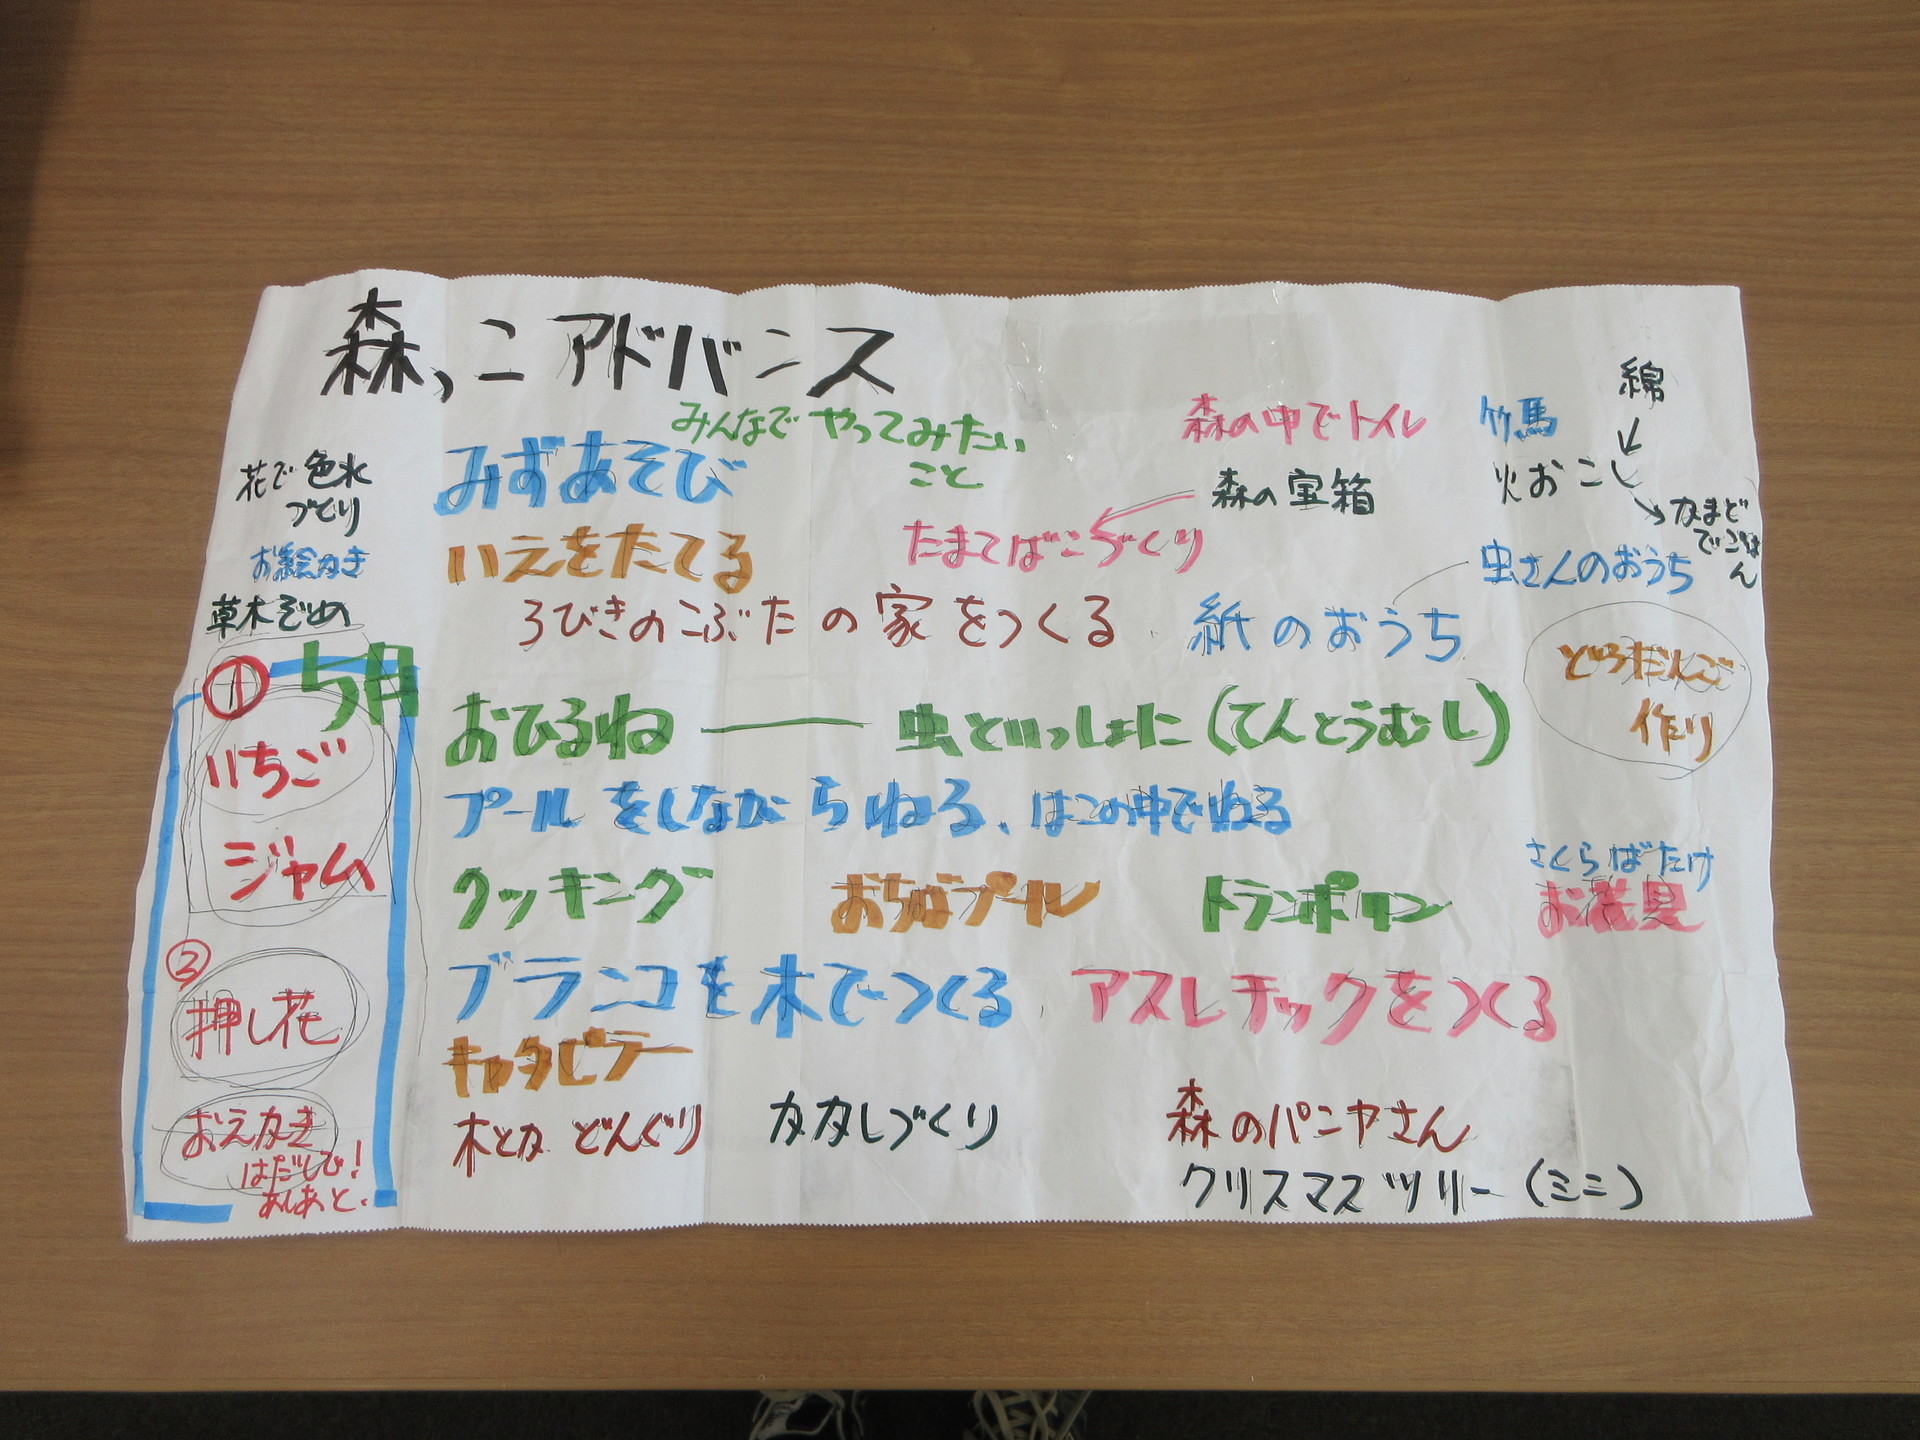 森っこアドバンス
みんなでやってみたい
こと
花で色水
づくり
お絵かき
草木ぞめ
① 5月
いちご
ジャム
②
押し花
おえかき
はだしで!
あしあと.
みずあそび
いえをたてる
3びきのこぶたの家をつくる
おひるね ― 虫といっしょに(てんとうむし)
プールをしながらねる、はこの中でねる
クッキング おちばプール トランポリン
ブランコを木でつくる、アスレチックをつくる
キャタピラー
木とか どんぐり カタしづくり
森のパンヤさん
クリスマスツリー(ミニ)
森の中でトイレ
森の宝箱
たまてばこづくり
紙のおうち
虫さんのおうち
竹馬
綿
火おこし
かまど
でごはん
どろだんご
作り
さくらばたけ
お花見